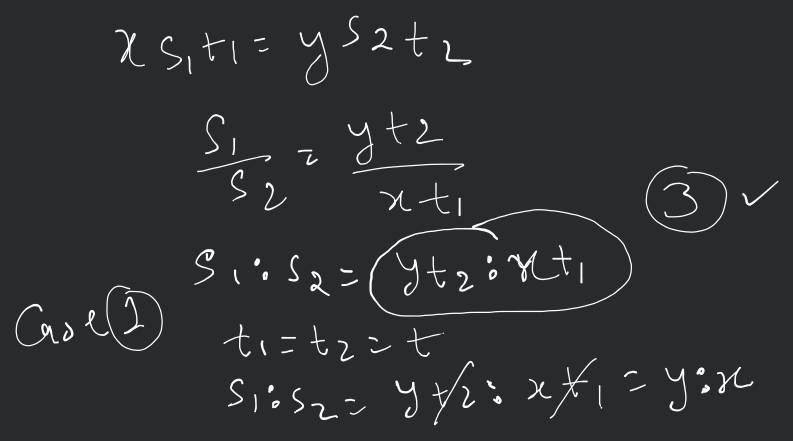 x s₁t₁ = y s₂t₂
s₁/s₂ = yt₂/xt₁
③ ✓
s₁:s₂ = yt₂:xt₁
Case ①
t₁ = t₂ = t
s₁:s₂ = yt₂: xt₁ = y:x